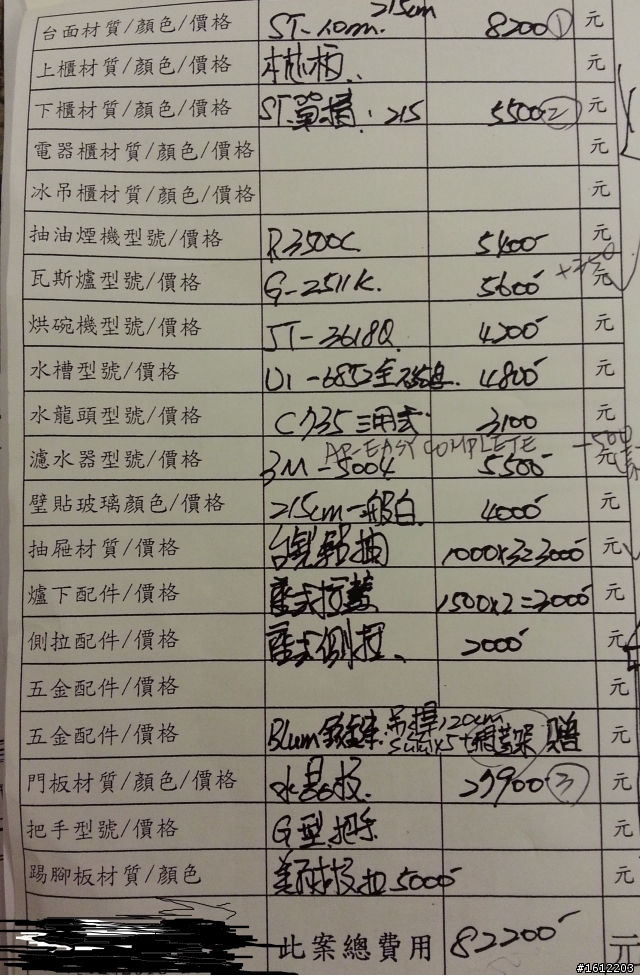 台面材質/顏色/價格 ST-10m. 215cm 8200① 元
上櫃材質/顏色/價格 木芯板.. 元
下櫃材質/顏色/價格 ST單槽. 215 5500② 元
電器櫃材質/顏色/價格 元
冰吊櫃材質/顏色/價格 元
抽油煙機型號/價格 R3500C 5400 元
瓦斯爐型號/價格 G-2511K. 5600 元
烘碗機型號/價格 ST-3618Q 4200 元
水槽型號/價格 4800 元
水龍頭型號/價格 C735三用式 3100 元
AP-EASY COMPLETE -500
濾水器型號/價格 3M-5004 5500 元
壁貼玻璃顏色/價格 215cm一般白. 4000 元
抽屜材質/價格 台製 抽 1000x3=3000 元
爐下配件/價格 1500x2=3000 元
側拉配件/價格 側拉 2000 元
五金配件/價格 元
五金配件/價格 Blum 吊櫃120cm 贈 元
門板材質/顏色/價格 水晶板 27900③ 元
把手型號/價格 G型把手 元
踢腳板材質/顏色 扣5000 元
此案總費用 82200 元
#1612203